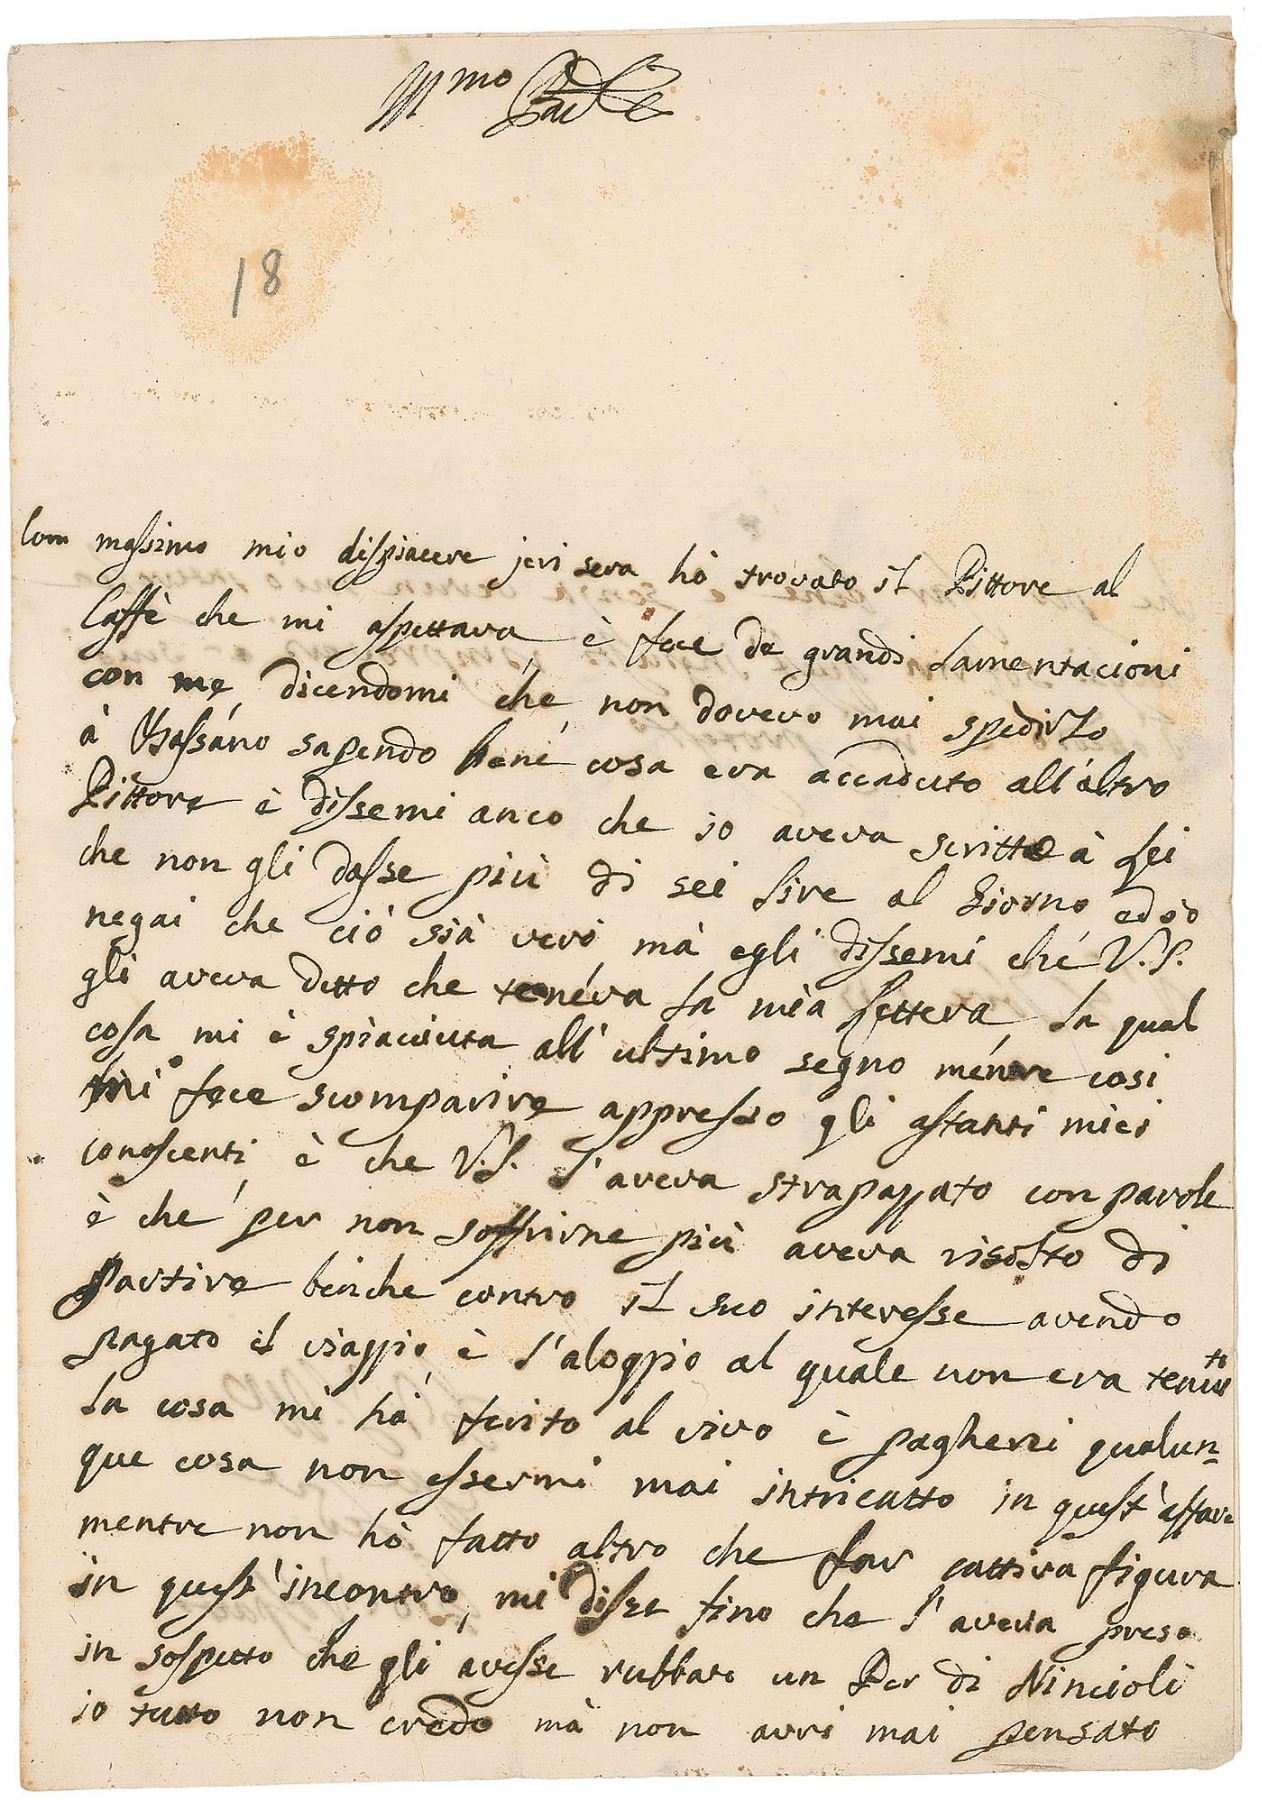 Ill.mo
18
Com massimo mio dispiacere jeri sera hò trovato il Pittore al
Caffè che mi aspettava è fece de grandi lamentacioni
con me dicendomi che non dovevo mai spedirlo
à Bassano sapendo bene cosa era accaduto all'altro
Pittore è dissemi anco che io aveva scritto à Lei
che non gli dasse più di sei lire al Giorno ed io
negai che ciò sià vero mà egli dissemi che V.S.
gli aveva detto che teneva la mia lettera la qual
cosa mi è spiaciuta all'ultimo segno mentre cosi
mi fece scomparire appresso gli astanti miei
conoscenti è che V.S. l'aveva strapappato con parole
è che per non soffrirne più aveva risolto di
partire benche contro il suo interesse avendo
pagato il viaggio è l'aloggio al quale non era tenuto
la cosa mi hà ferito al vivo è pagherei qualun=
que cosa non essermi mai intricatto in quest'affare
mentre non hò fatto altro che far cattiva figura
in quest'incontro, mi disse fino che l'aveva preso
in sospetto che gli avesse rubbato un Per di Nincioli
io tutto non credo mà non avri mai pensato